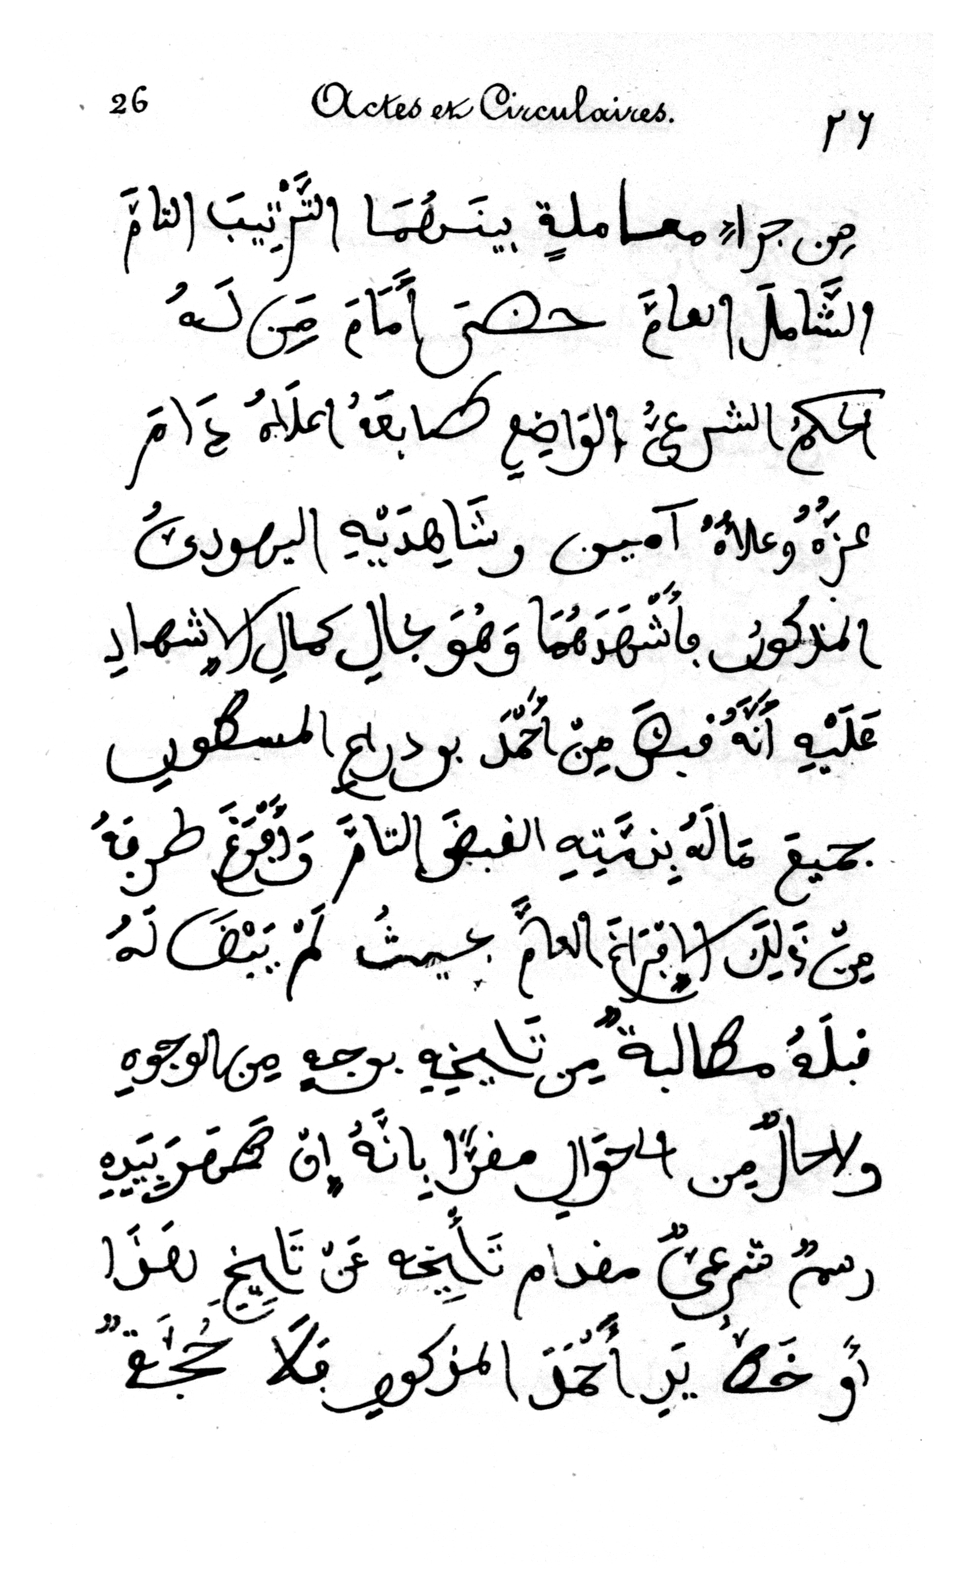 26 Actes et Circulaires. ٢٦
مِن جَرَاءِ معاملةٍ بينَهُمَا التَّرْتِيبَ التامَّ
الشَّاملَ العامَّ حضرَ أَمَامَ مَن لَهُ
الحكمُ الشرعيُّ الوَاضِع طابعَهُ اعلَاهُ دَامَ
عِزُّهُ وعلاهُ آميـن وشَاهِدَيْهِ اليهوديُّ
المذكورُ فأَشْهَدَهُمَا وَهُوَ بحالِ كمالِ الإشهادِ
عَلَيْهِ أَنَّهُ قبضَ مِنْ أَحْمَدَ بو دراع المسطور
جميعَ مَا لَهُ بِذِمَّتِهِ القبضَ التامَّ وَأَبْرَأَ طرفَهُ
مِنْ ذَلِكَ الإبْرَاءَ العامَّ بحيثُ لَمْ يَبْقَ لَهُ
قبلَهُ مطالبةٌ مِن تَاريخِهِ بوجهٍ مِن الوجوهِ
ولا حالٌ مِن الاحْوَالِ مقرًّا بِأَنَّهُ إِنْ ظهرَ بِيَدِهِ
رسمٌ شرعيٌّ مقدام تَأْرِيخُه عَنْ تَارِيخِ هَذَا
أَو خَطُّ يَدِ أَحْمَدَ المذكور فَلَا حُجَّةٌ